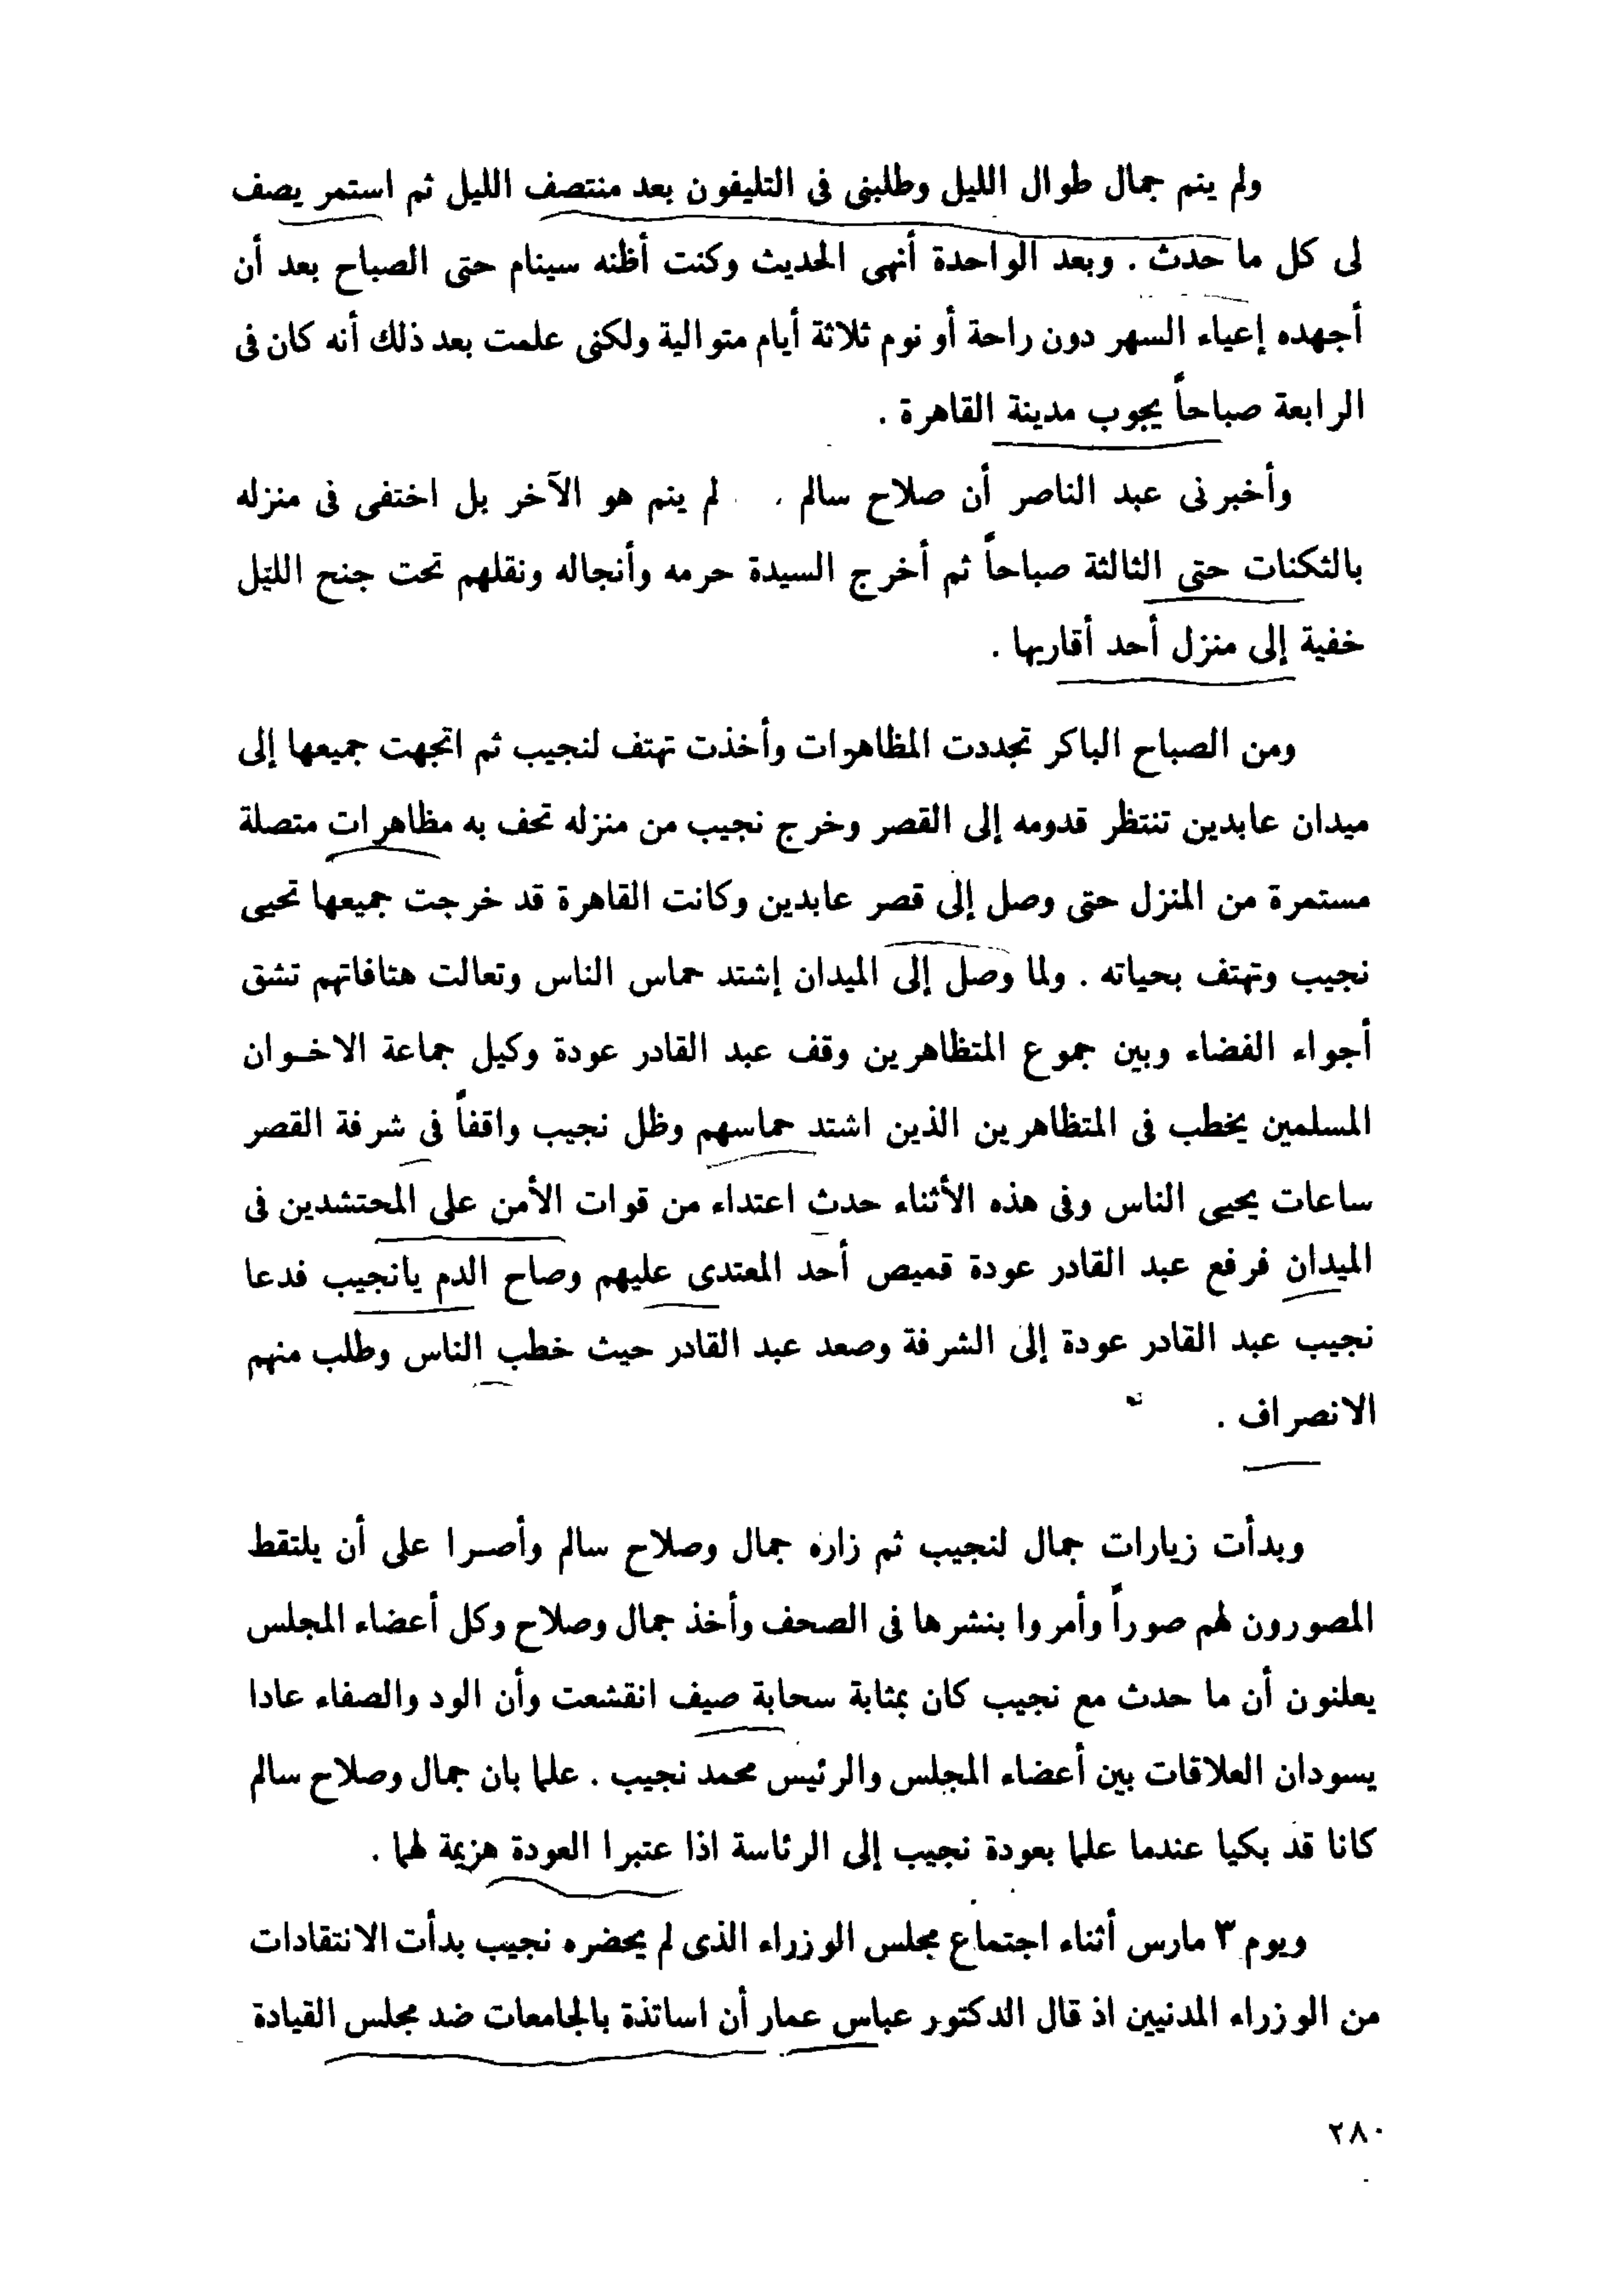 ولم ينم جمال طوال الليل وطلبنى فى التليفون بعد منتصف الليل ثم استمر يصف
لى كل ما حدث . وبعد الواحدة أنهى الحديث وكنت أظنه سينام حتى الصباح بعد أن
أجهده إعياء السهر دون راحة أو نوم ثلاثة أيام متوالية ولكنى علمت بعد ذلك أنه كان فى
الرابعة صباحاً يجوب مدينة القاهرة .
وأخبرنى عبد الناصر أن صلاح سالم . لم ينم هو الآخر بل اختفى فى منزله
بالثكنات حتى الثالثة صباحاً ثم أخرج السيدة حرمه وأنجاله ونقلهم تحت جنح الليل
خفية إلى منزل أحد أقاربها .
ومن الصباح الباكر تجددت المظاهرات وأخذت تهتف لنجيب ثم اتجهت جميعها إلى
ميدان عابدين تنتظر قدومه إلى القصر وخرج نجيب من منزله تحف به مظاهرات متصلة
مستمرة من المنزل حتى وصل إلى قصر عابدين وكانت القاهرة قد خرجت جميعها تحيى
نجيب وتهتف بحياته . ولما وصل إلى الميدان إشتد حماس الناس وتعالت هتافاتهم تشق
أجواء الفضاء وبين جموع المتظاهرين وقف عبد القادر عودة وكيل جماعة الاخوان
المسلمين يخطب فى المتظاهرين الذين اشتد حماسهم وظل نجيب واقفاً فى شرفة القصر
ساعات يحيى الناس وفى هذه الأثناء حدث اعتداء من قوات الأمن على المحتشدين فى
الميدان فرفع عبد القادر عودة قميص أحد المعتدى عليهم وصاح الدم يانجيب فدعا
نجيب عبد القادر عودة إلى الشرفة وصعد عبد القادر حيث خطب الناس وطلب منهم
الانصراف .
وبدأت زيارات جمال لنجيب ثم زاره جمال وصلاح سالم وأصرا على أن يلتقط
المصورون لهم صوراً وأمروا بنشرها فى الصحف وأخذ جمال وصلاح وكل أعضاء المجلس
يعلنون أن ما حدث مع نجيب كان بمثابة سحابة صيف انقشعت وأن الود والصفاء عادا
يسودان العلاقات بين أعضاء المجلس والرئيس محمد نجيب . علما بان جمال وصلاح سالم
كانا قد بكيا عندما علما بعودة نجيب إلى الرئاسة اذا عتبرا العودة هزيمة لهما .
ويوم ٣ مارس أثناء اجتماع مجلس الوزراء الذى لم يحضره نجيب بدأت الانتقادات
من الوزراء المدنيين اذ قال الدكتور عباس عمار أن اساتذة بالجامعات ضد مجلس القيادة
٢٨٠